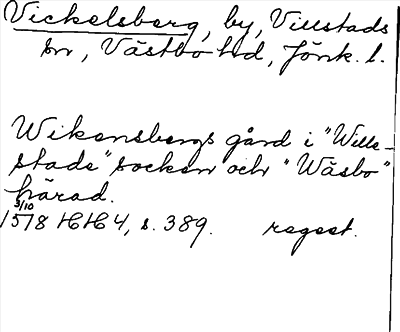 Vickelsberg, by, Villstads
sn, Västbo hd, Jönk. l.
Wikensbergs gård i "Wille-
stads" socken och "Wäsbo"
härad.
3/10
1578 HH 4, s. 389. regest.